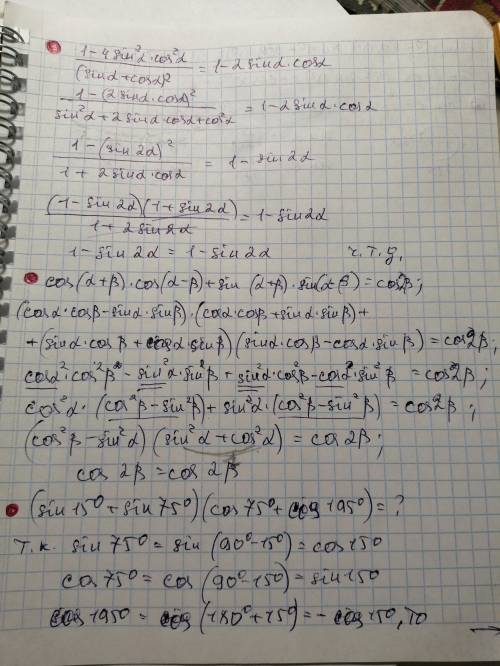 (1-4sin²α·cos²α)/(sinα+cosα)² = 1-2sinα·cosα
(1-(2sinα·cosα)²)/(sin²α+2sinα·cosα+cos²α) = 1-2sinα·cosα
(1-(sin2α)²)/(1+2sinα·cosα) = 1-sin2α
((1-sin2α)(1+sin2α))/(1+2sin2α) = 1-sin2α
1-sin2α = 1-sin2α ч.т.д.
cos(α+β)·cos(α-β)+sin(α+β)·sin(α-β)=cos2β;
(cosα·cosβ-sinα·sinβ)·(cosα·cosβ+sinα·sinβ)+
+(sinα·cosβ+cosα·sinβ)(sinα·cosβ-cosα·sinβ)=cos2β;
cosα²·cos²β-sin²α·sin²β+sin²α·cos²β-cosα²·sin²β=cos2β;
cos²α·(cos²β-sin²β)+sin²α·(cos²β-sin²β)=cos2β;
(cos²β-sin²α)(sin²α+cos²α)=cos2β;
cos2β=cos2β
(sin15°+sin75°)(cos75°+cos195°)=?
т.к. sin75°=sin(90°-15°)=cos15°
cos75°=cos(90°-15°)=sin15°
cos195°=cos(180°+15°)=-cos15°, то
→